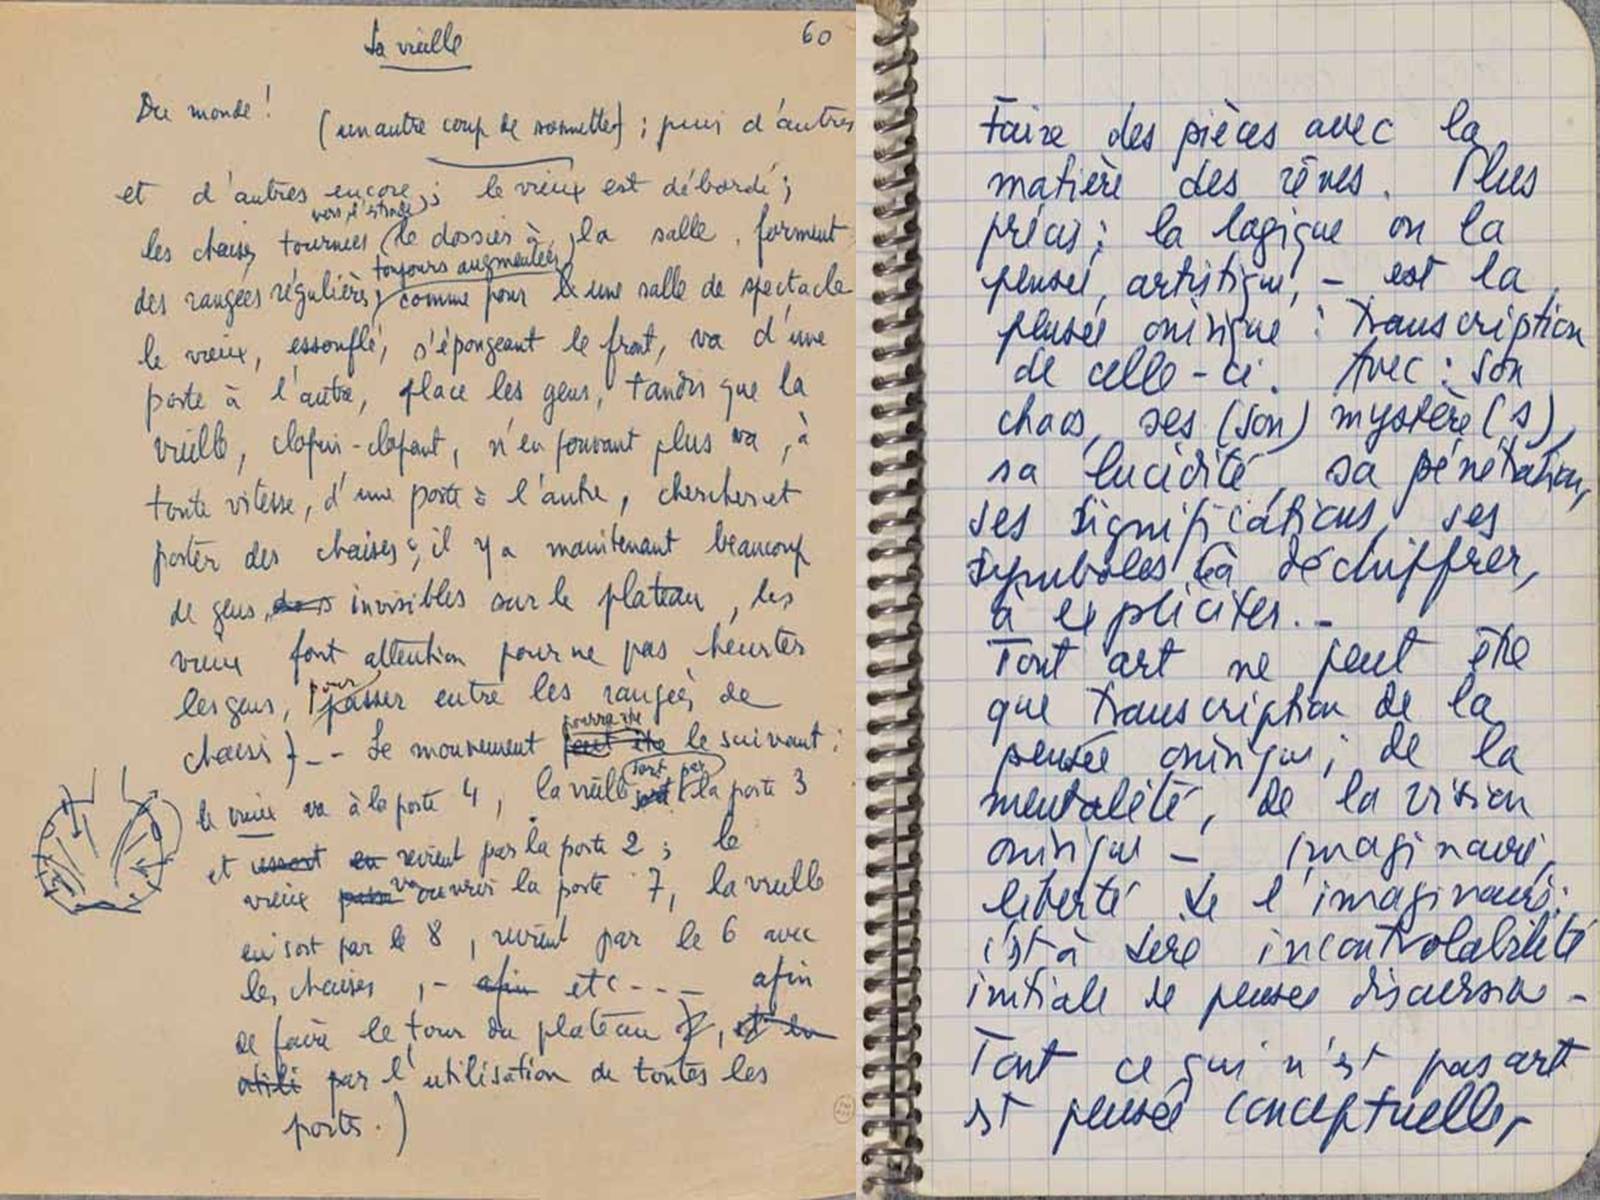 La vieille
60
Du monde!
(un autre coup de sonnette) ; puis d'autres
et d'autres encore ; le vieux est débordé ;
vers l'estrade
les chaises, tournées (le dossier à la salle, forment
toujours augmentées
des rangées régulières, comme pour une salle de spectacle
le vieux, essouflé, s'épongeant le front, va d'une
porte à l'autre, place les gens, tandis que la
vieille, clopin-clopant, n'en pouvant plus va, à
toute vitesse, d'une porte à l'autre, chercher et
porter des chaises ; il y a maintenant beaucoup
de gens invisibles sur le plateau, les
vieux font attention pour ne pas heurter
pour
les gens, passer entre les rangées de
pourra être
chaises) -- Le mouvement peut être le suivant :
sort par
le vieux va à la porte 4, la vieille sort la porte 3
et ressort en revient par la porte 2 ; le
va
vieux passe ouvrir la porte 7, la vieille
en sort par le 8, revient par le 6 avec
les chaises, - afin etc - - - afin
de faire le tour du plateau, et la
utili par l'utilisation de toutes les
portes.)
Faire des pièces avec la
matière des rêves. Plus
précis : la logique ou la
pensée, artistique, - est la
pensée onirique : transcription
de celle-ci. Avec : son
chaos, ses (son) mystère(s),
sa lucidité, sa pénétration,
ses significations, ses
symboles à déchiffrer,
à expliciter. -
Tout art ne peut être
que transcription de la
pensée onirique ; de la
mentalité, de la vision
onirique - imaginaire,
liberté de l'imaginaire :
c'est à dire incontrolabilité
initiale de pensée discursive -
Tout ce qui n'est pas art
est pensée conceptuelle,